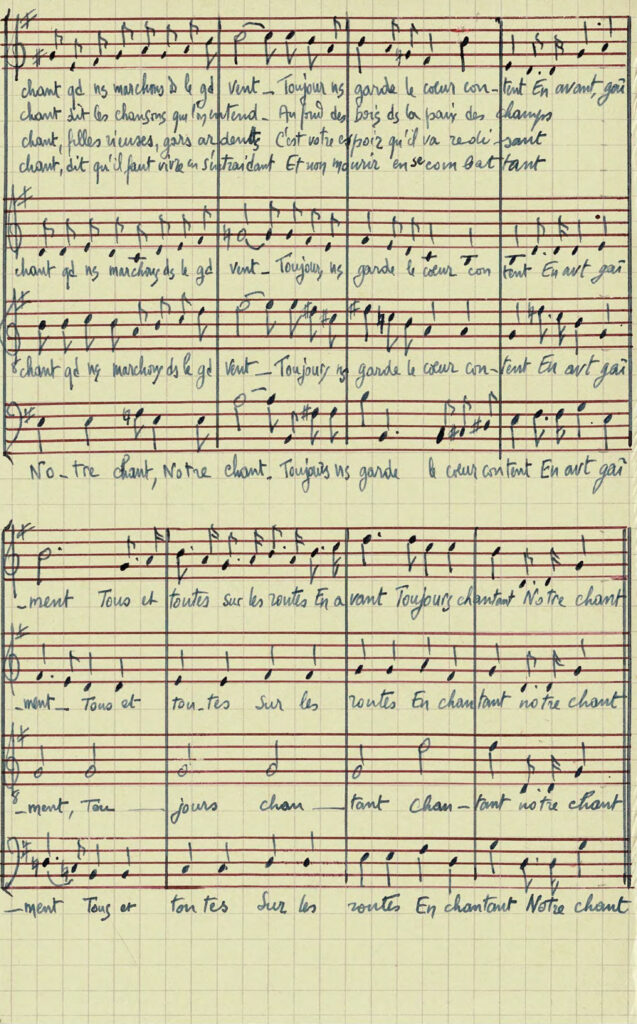 chant qd ns marchons ds le gd vent_ Toujours ns garde le cœur con-tent En avant, gaî
chant dit les chansons qu'on entend_ Au fond des bois ds la paix des champs
chant, filles rieuses, gars ardents C'est votre espoir qu'il va redi-sant
chant, dit qu'il faut vivre en s'entraidant Et non mourir en se combattant
chant qd ns marchons ds le gd vent_ Toujours ns garde le cœur con tent En avt gaî
chant qd ns marchons ds le gd vent_ Toujours ns garde le cœur con-tent En avt gaî
No-tre chant, Notre chant. Toujours ns garde le cœur content En avt gaî
_ment Tous et toutes sur les routes En avant Toujours chantant Notre chant
_ment_ Tous et tou-tes Sur les routes En chantant notre chant
8
_ment, Tou___jours chan___tant Chan-tant notre chant
_ment Tous et toutes Sur les routes En chantant Notre chant